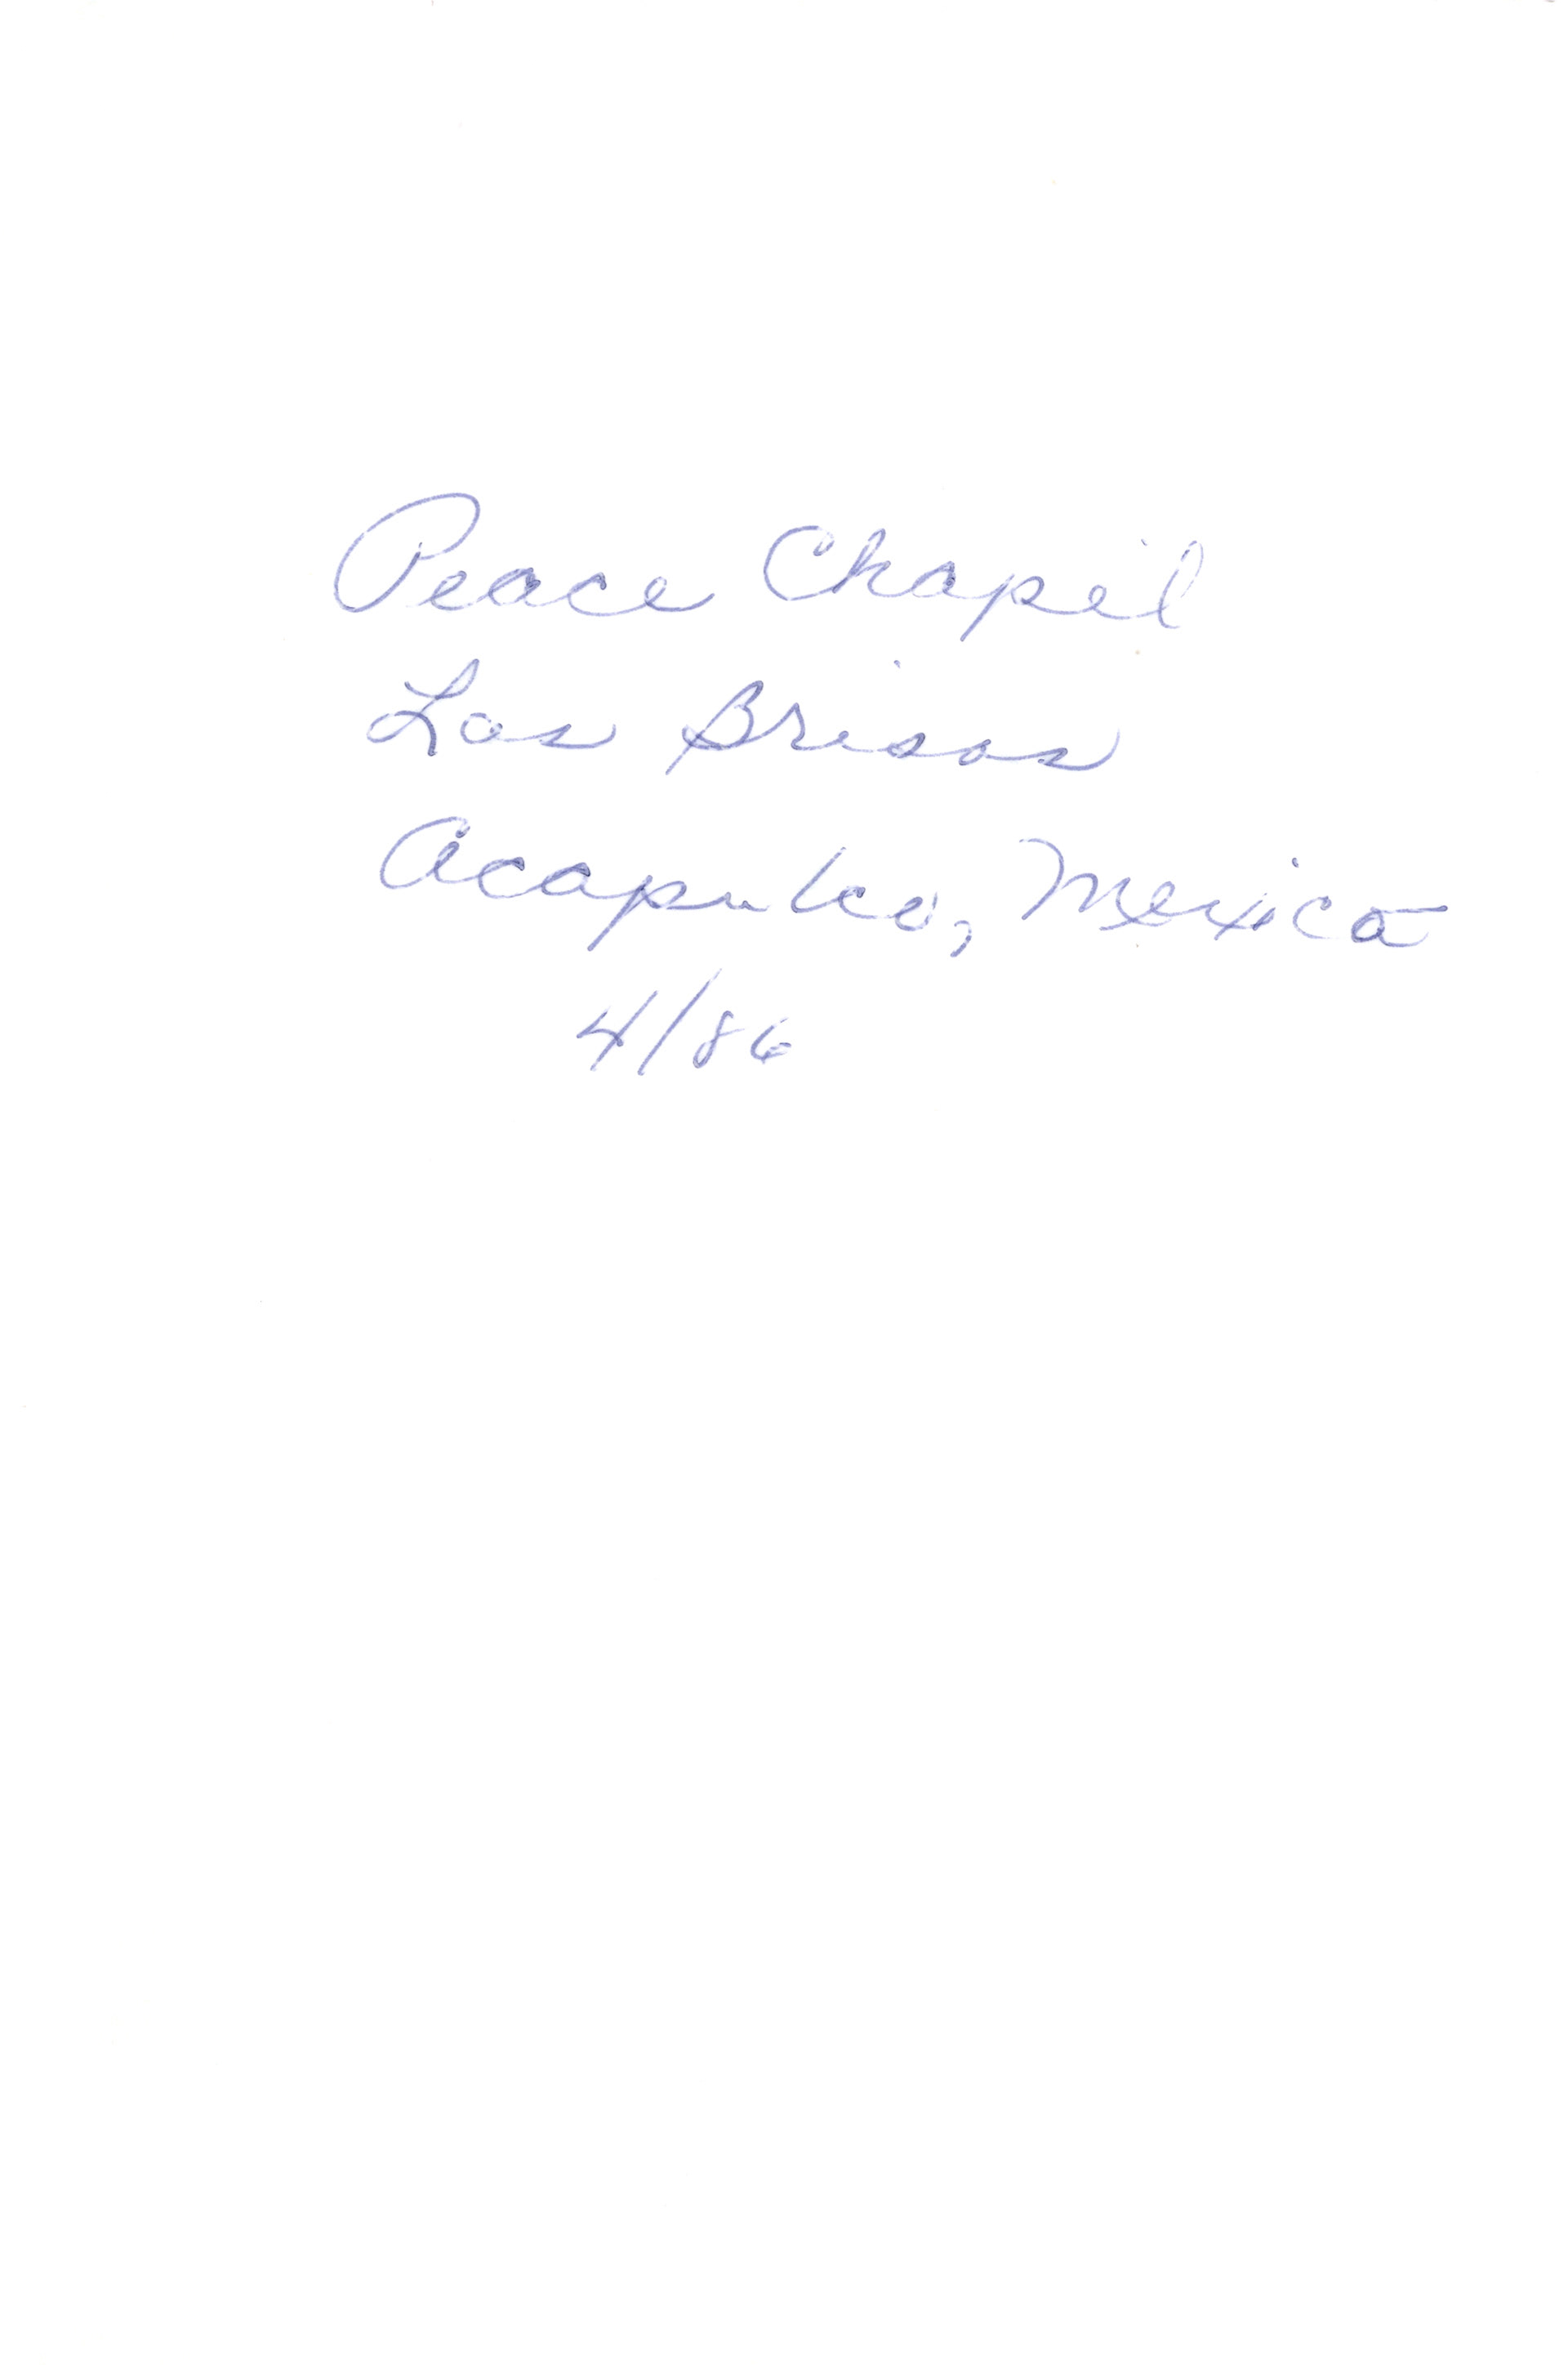 Peace Chapel
Las Brisas
Acapulco, Mexico
4/86